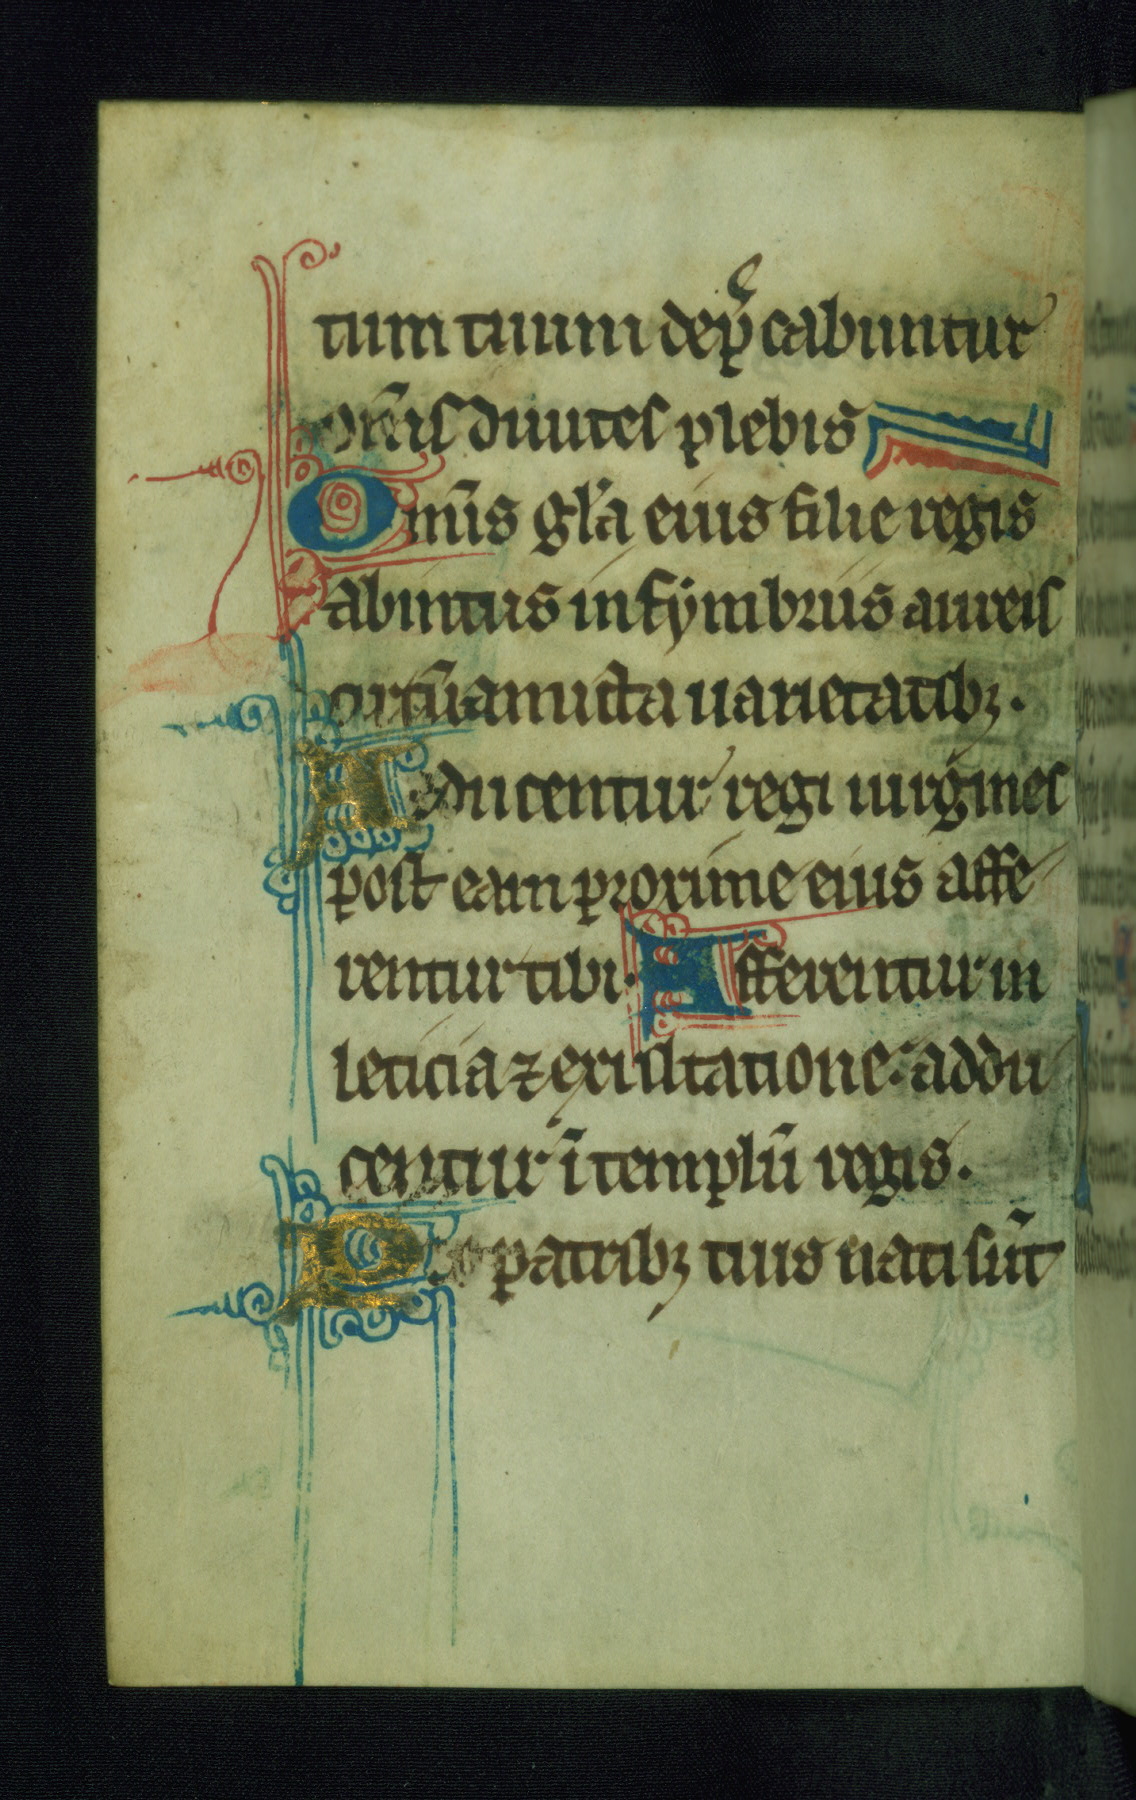 tum tuum dep̃cabuntur
om̃is diuites plebis
Om̃is gl̃a eius filie regis
abintus in fymbriis aureis
circũamicta uarietatibꝫ.
Adducentur regi uirgines
post eam proxime eius affe
rentur tibi. Afferentur in
leticia ⁊ exultatione: addu
centur ĩ templũ regis.
Pro patribꝫ tuis nati sũt